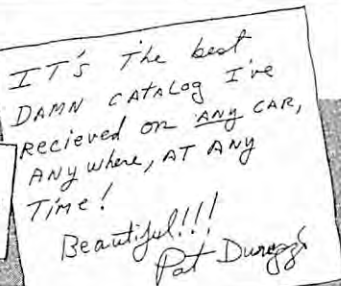 IT's The best
DAMN CATALog I've
Recieved on ANY CAR,
ANywhere, AT ANY
TIME!
Beautiful!!!
Pat